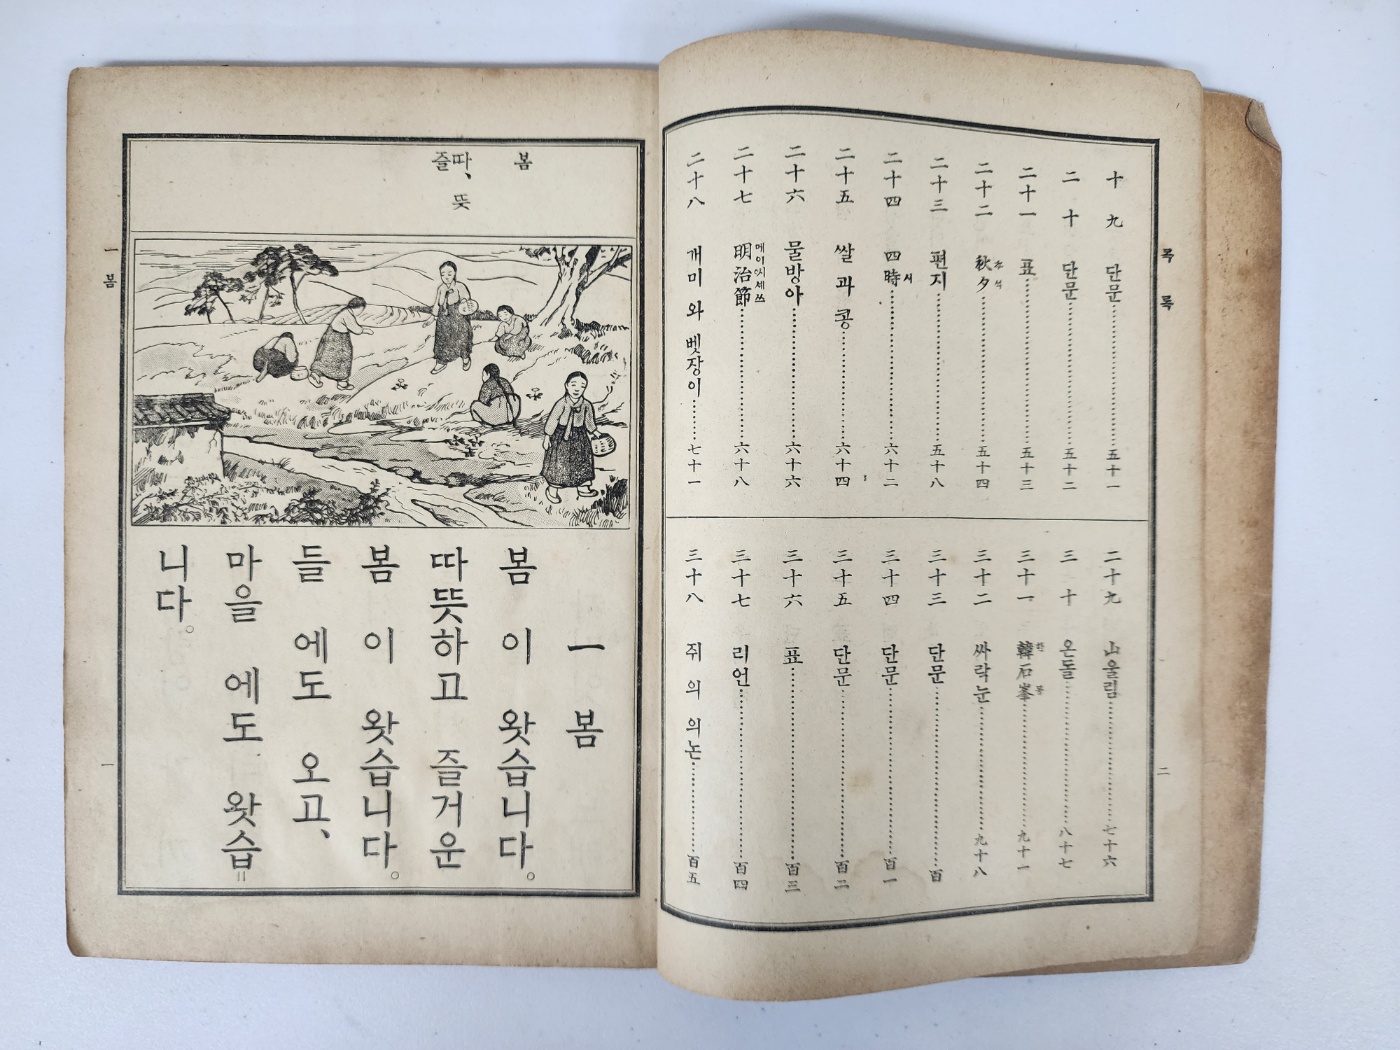 목록
十九 단문……五十一
二十 단문……五十二
二十一 표……五十三
二十二 秋夕……五十四
추석
二十三 편지……五十八
二十四 四時……六十二
시
二十五 쌀과 콩……六十四
二十六 물방아……六十六
二十七 明治節……六十八
二十八 개미와 벳장이……七十一
二十九 山울림……七十六
三十 온돌……八十七
三十一 韓石峯……九十一
한 봉
三十二 싸락눈……九十八
三十三 단문……百
三十四 단문……百一
三十五 단문……百二
三十六 표……百三
三十七 리언……百四
三十八 쥐의 의논……百五
二
봄
따、 뜻
즐
一 봄
봄이 왓습니다。
따뜻하고 즐거운
봄이 왓습니다。
들에도 오고、
마을에도 왓습=
니다。
一 봄
一